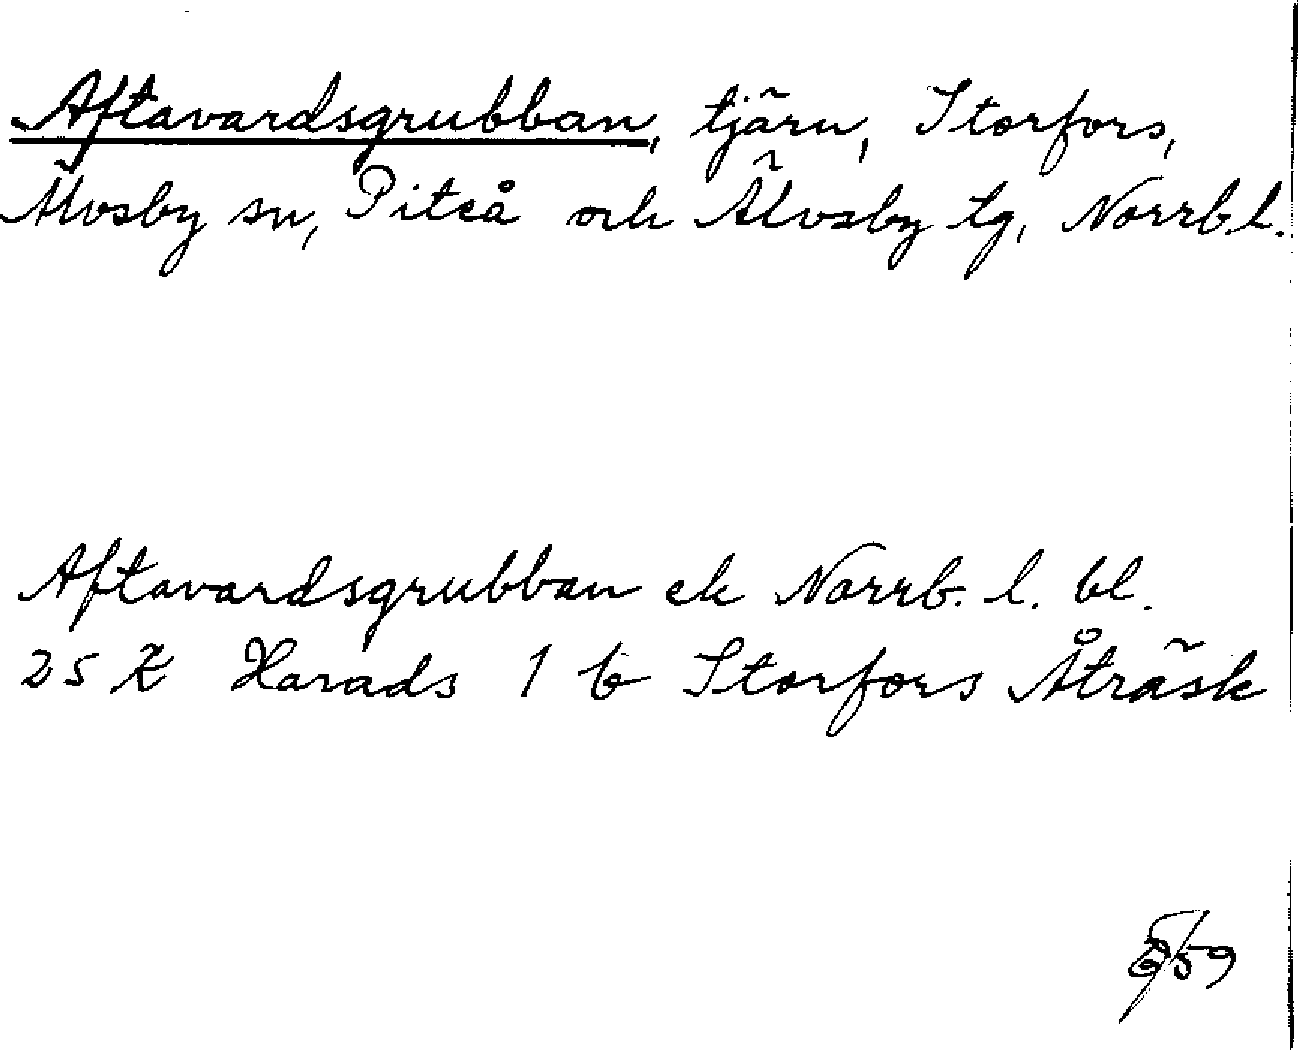 Aftavardsgrubban, tjärn, Storfors,
Älvsby sn, Piteå och Älvsby tg, Norrb.l.
Aftavardsgrubban ek Norrb. l. bl.
25 K Harads 1 b Storfors Åträsk